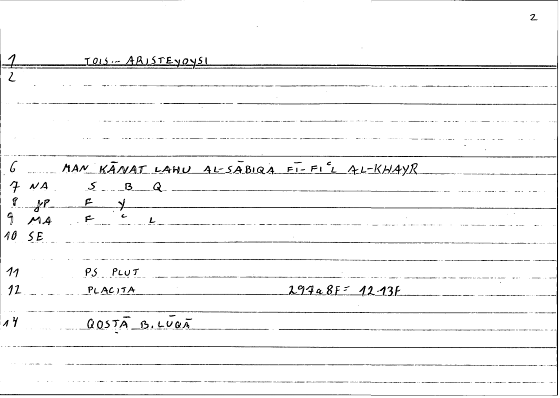 2
1 TOIS... ARISTEYOYSI
2
6 MAN KĀNAT LAHU AL-SĀBIQA FĪ-FIʿL AL-KHAYR
7 NA S B Q
8 γP F Y
9 MA F ʿ L
10 SE
11 PS PLUT
12 PLACITA 297a8F = 12-13F
14 QOSṬĀ B. LŪQĀ